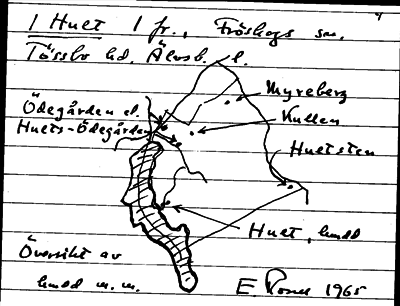 1 Huet 1 fr., Fröskogs sn.
Tössbo hd. Älvsb. l.
Myreberg
Ödegården el.
Kullen
Huets-Ödegården
Huetsten
Huet,
Översikt av
m. m.
E 1965